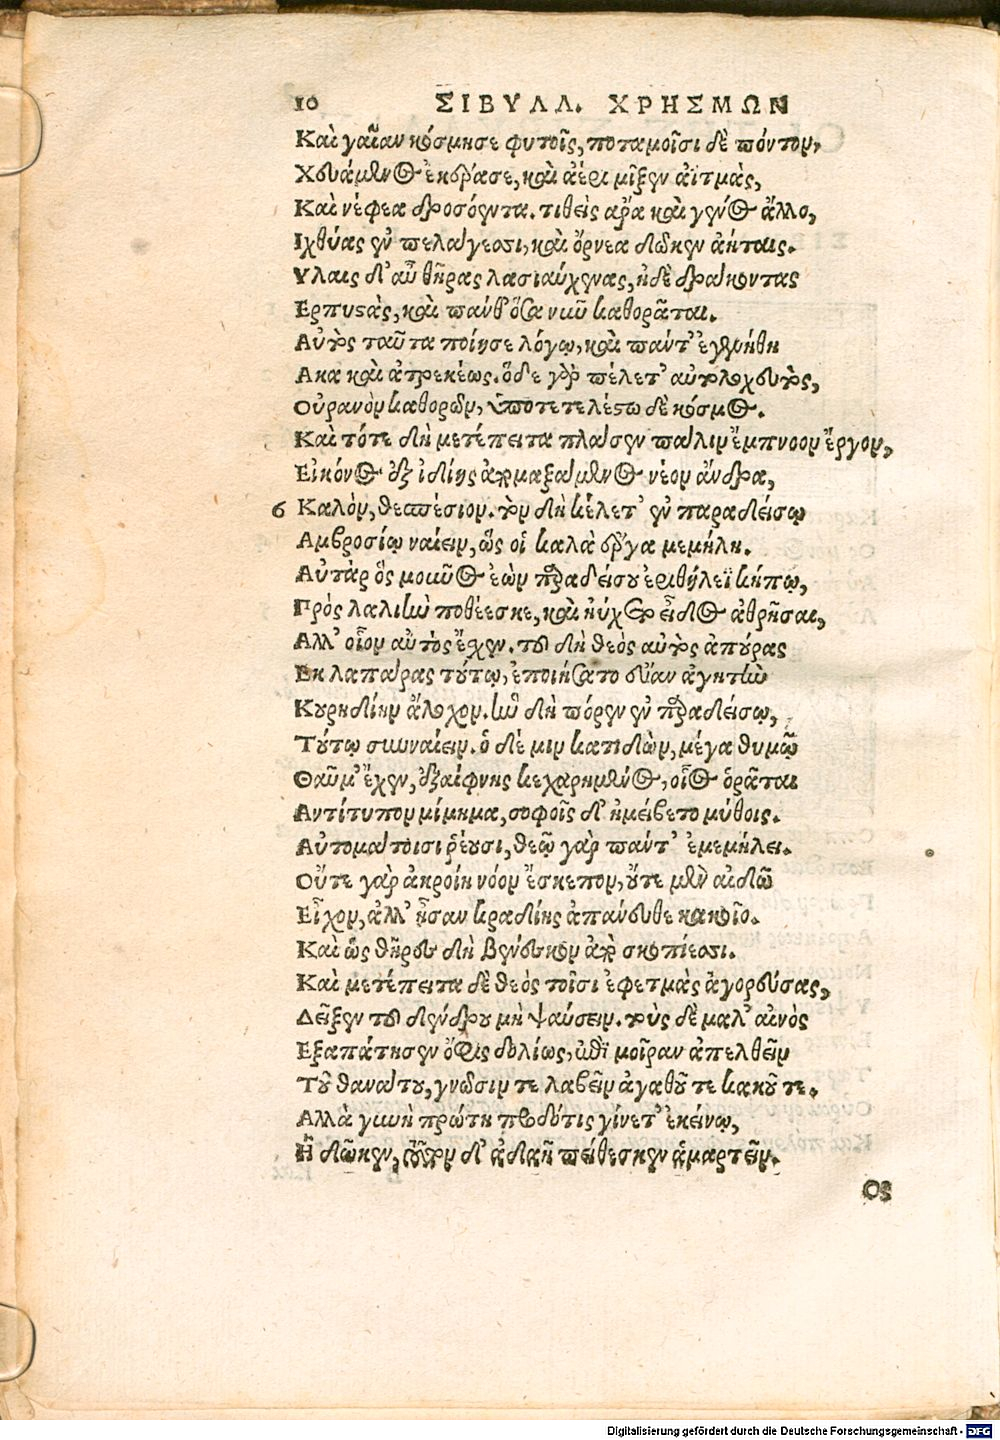 10 ΣΙΒΥΛΛ. ΧΡΗΣΜΩΝ
Καὶ γαῖαν κόσμησε φυτοῖς, ποταμοῖσι δὲ πόντον,
Χευάμενος ἐκέρασε, καὶ ἀέρι μῖξεν ἀϊτμὰς,
Καὶ νέφεα δροσόεντα. τιθεὶς ἄρα καὶ γένος ἄλλο,
Ιχθύας ἐν πελάγεσσι, καὶ ὄρνεα δῶκεν ἀήταις.
Υλαις δ' αὖ θῆρας λασιαύχενας, ἠδὲ δράκοντας
Ερπυστὰς, καὶ πάνθ' ὅσα νῦν καθορᾶται.
Αὐτὸς ταῦτα ποίησε λόγῳ, καὶ πάντ' ἐγενήθη
Ακα καὶ ἀτρεκέως. ὅδε γὰρ πέλετ' αὐτολόχευτος,
Οὐρανὸν καθορῶν, ὑποτετελέστο δὲ κόσμος.
Καὶ τότε δὴ μετέπειτα πλάσεν πάλιν ἔμπνοον ἔργον,
Εἰκόνος ἐξ ἰδίης ἀπομαξάμενος νέον ἄνδρα,
6 Καλὸν, θεσπέσιον. τὸν δὴ κέλετ' ἐν παραδείσῳ
Αμβροσίῳ ναίειν, ὥς οἱ καλὰ ἔργα μεμήλῃ.
Αὐτὰρ ὃς μοῦνος ἐὼν παραδείσου ἐριθηλέϊ κήπῳ,
Πρὸς λαλιὴν ποθέεσκε, καὶ ηὔχετο εἶδος ἀθρῆσαι,
Αλλ' οἷον αὐτὸς ἔχεν. τοῦ δὴ θεὸς αὐτὸς ἀπούρας
Εκ λαπάρας τούτῳ, ἐποιήσατο Εὔαν ἀγητὴν
Κουριδίην ἄλοχον. ἣν δὴ πόρεν ἐν παραδείσῳ,
Τούτῳ συνναίειν. ὁ δέ μιν κατιδὼν, μέγα θυμῷ
Θαῦμ' ἔχεν, ἐξαίφνης κεχαρημένος, οἷος ὁρᾶται
Αντίτυπον μίμημα, σοφοῖς δ' ἠμείβετο μύθοις.
Αὐτομάτοισι ῥέουσι, θεῷ γὰρ πάντ' ἐμεμήλει.
Οὔτε γὰρ ἀκροίη νόον ἔσκεπον, οὔτε μὲν αἰδῶ
Εἶχον, ἀλλ' ἦσαν κραδίης ἀπάνευθε κακοῖο.
Καὶ ὡς θῆρες δὴ βαίνεσκον σκοπίεσσι.
Καὶ μετέπειτα δὲ θεὸς τοῖσι ἐφετμὰς ἀγορεύσας,
Δεῖξεν τοῦ δένδρου μὴ ψαύσειν. τοὺς δὲ μαλ' αἰνὸς
Εξαπάτησεν ὄφις δολίως, ἐπὶ μοῖραν ἀπελθεῖν
Τοῦ θανάτου, γνῶσίν τε λαβεῖν ἀγαθοῦ τε κακοῦ τε.
Αλλὰ γυνὴ πρώτη προδότις γίνετ' ἐκείνῳ,
Ἣ δῶκεν, δ' ἀδαῆ πείθεσκεν ἁμαρτεῖν.
Ος
Digitalisierung gefördert durch die Deutsche Forschungsgemeinschaft - DFG